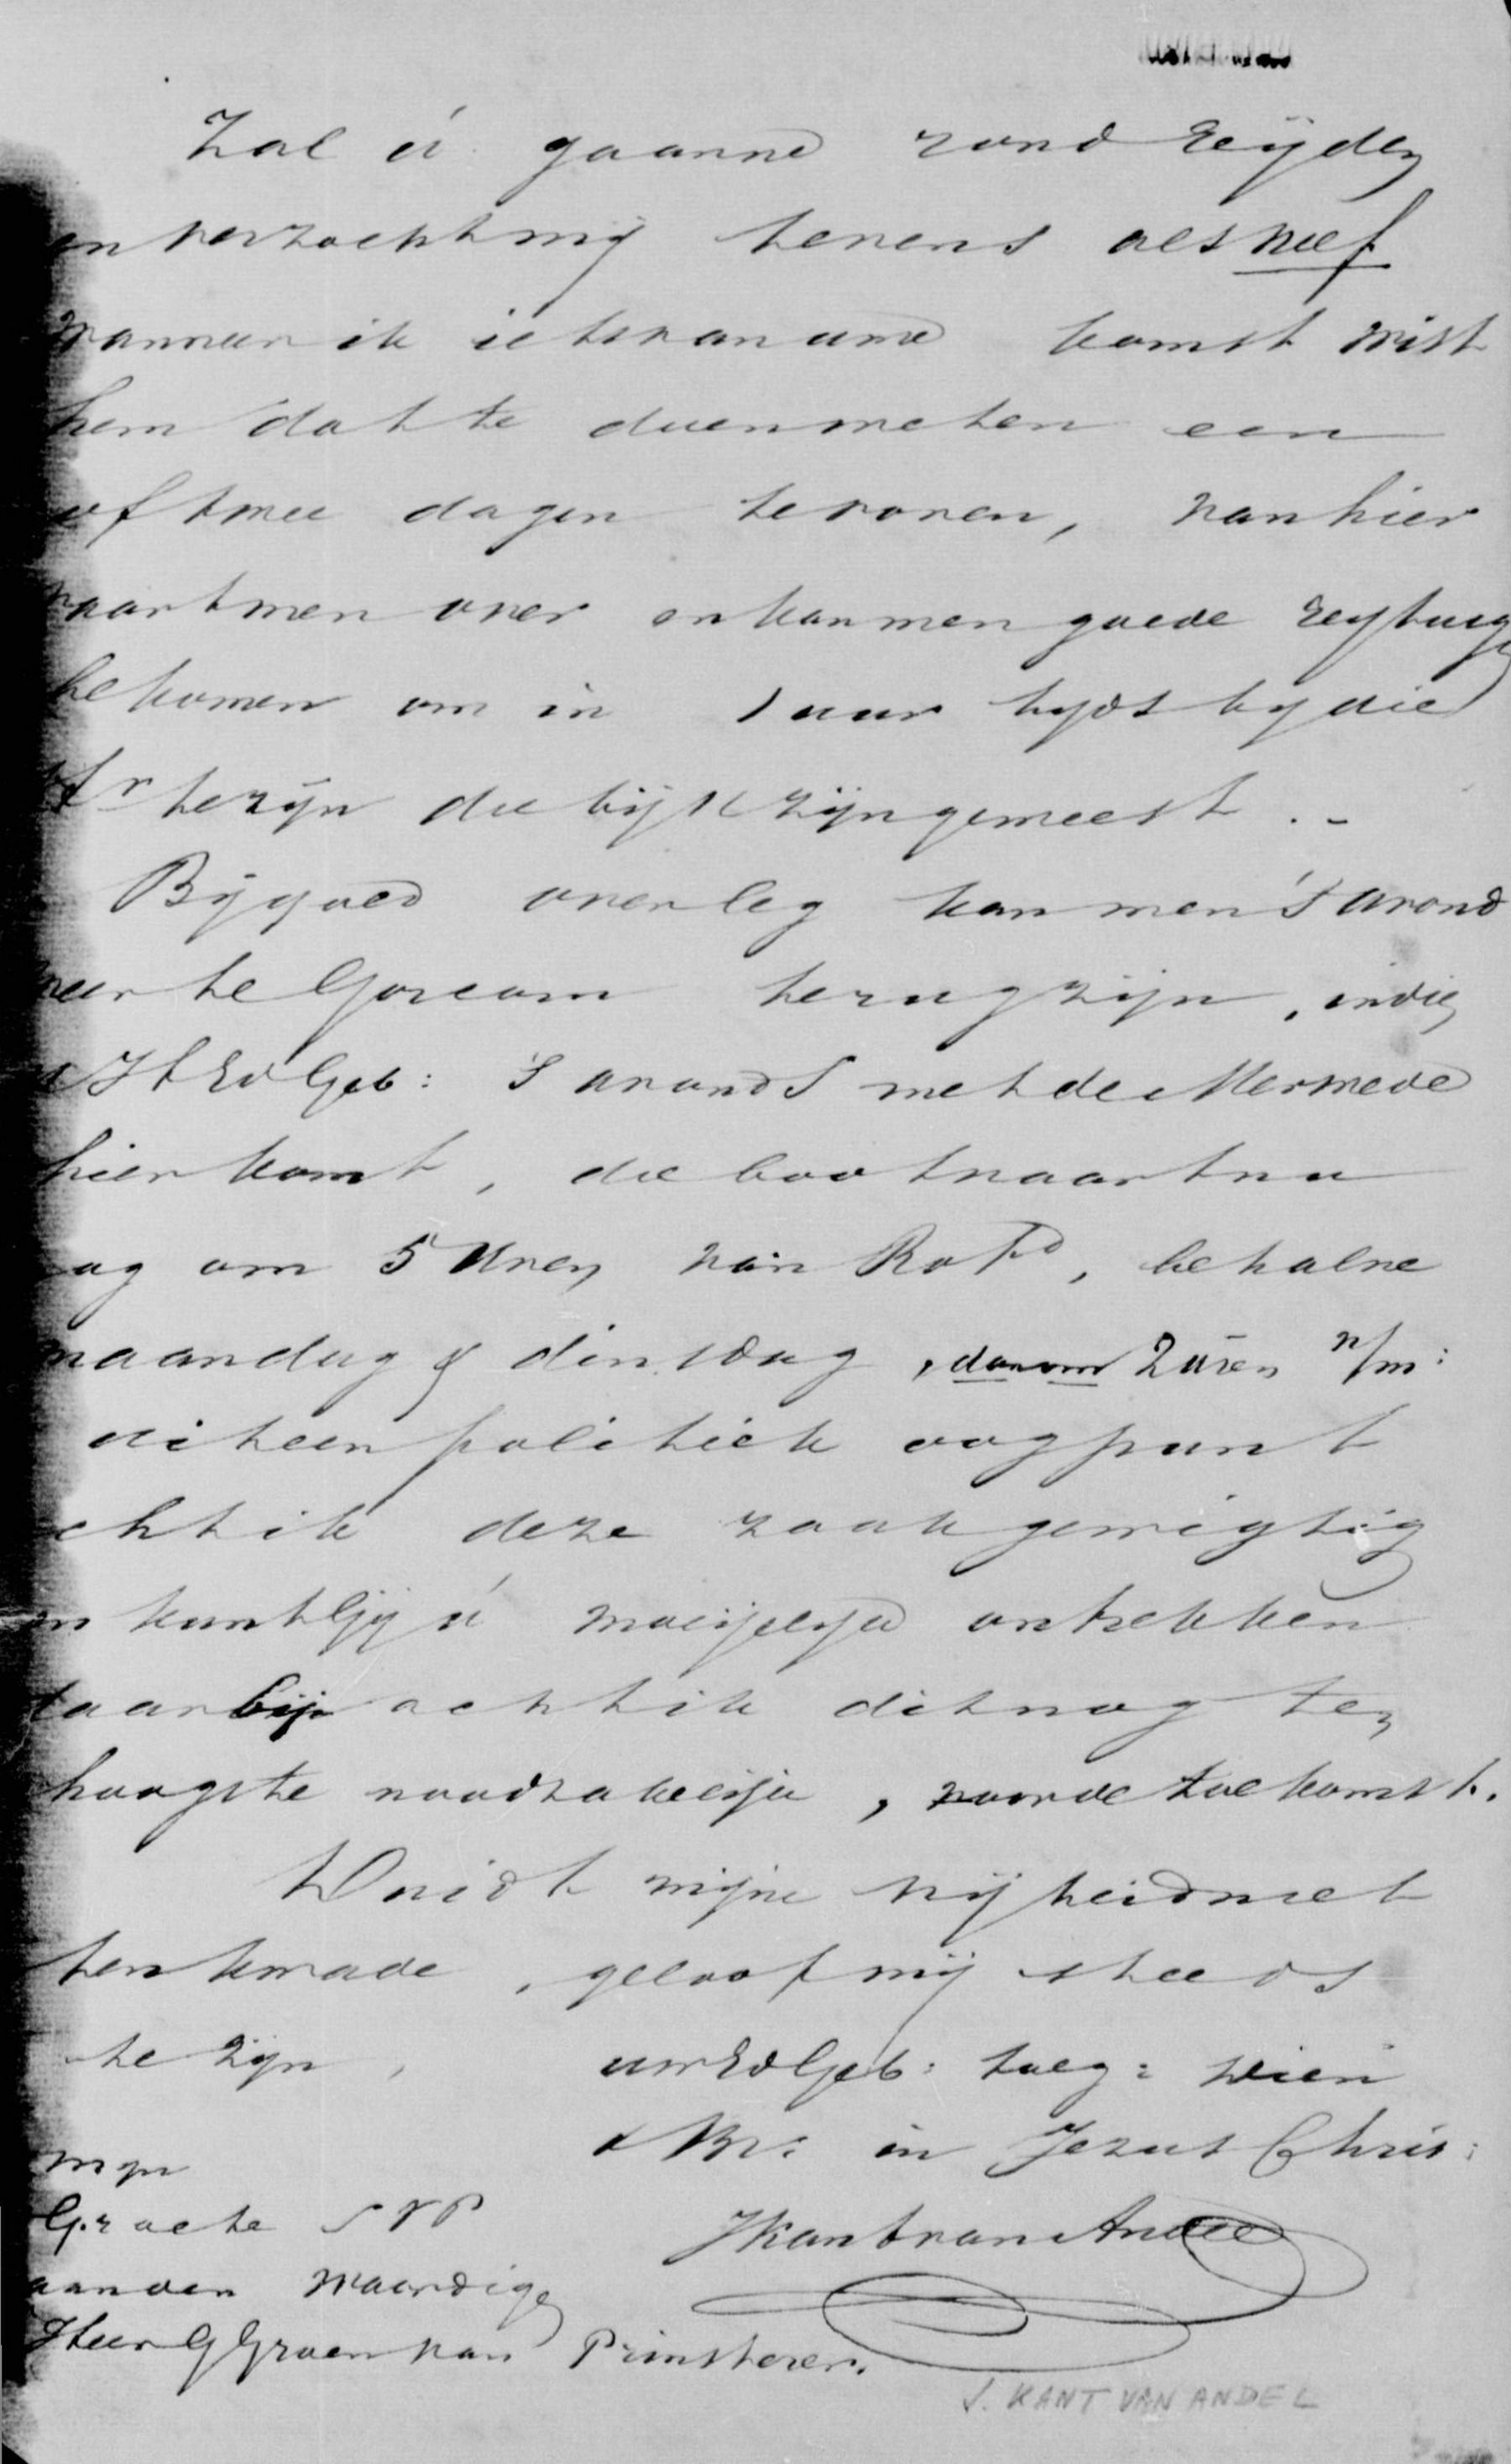 Zal ú gaarne rond reijden
en verzocht mij tevens als neef
wanneer ik iets van uwe komst wist
hem dat te doen weten een
of twee dagen te voren, van hier
vaart men over en kan men goede reijtuig
bekomen om in 1 uur tijds bij die
Hr te zijn die bij U zijn geweest. -
Bij goed overleg kan men 's avond
weer te Gorcum terug zijn, indien
UEdGeb: 's avonds met de Merwede
hier komt, die boot vaart nu
om 5 Uren van Rotd, behalve
maandag & dinsdag, dan om 2 uren n/m:
uit een politiek oogpunt
acht ik deze zaak gewigtig
en kunt Gij ú moeijelijk ontrekken
daarbij acht ik dit nog ten
hoogste noodzakelijk, voor de toekomst.
Duidt mijne vrijheid niet
ten kwade, geloof mij steeds
te zijn, uw EdGeb: toeg: dien
& Br: in Jezus Chris:
mijn
Groete SVP
aan den Waardige
Heer G Groen van Prinsterer.
JKant van Andel
J. KANT VAN ANDEL